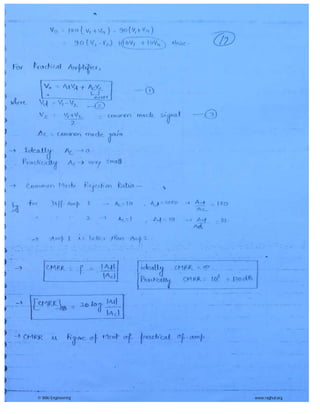 V₀ = 100(V₁+Vₙ) - 90(V₂+Vₙ)
= 90(V₁-V₂) + (10V₁ + 10Vₙ) Noise.
(12)
For Practical Amplifier,
V₀ = AdVd + AcVc — ①
error
where Vd = V₁-V₂ — ②
Vc = (V₁+V₂)/2 = common mode signal — ③
Ac = common mode gain
→ Ideally Ac → 0
Practically Ac → very small
→ Common Mode Rejection Ratio:-
Eg for Diff Amp 1 → Ac=10, Ad=1000 → Ad/Ac = 100
" " 2 → Ac=1, Ad=10 → = 10
⇒ Amp 1 is better than Amp 2
→ CMRR = ρ = |Ad|/|Ac| Ideally CMRR = ∞
Practically CMRR = = 120dB
→ [CMRR]dB = 20 log |Ad|/|Ac|
→ CMRR is Figure of Merit of practical op amp.
© Wiki Engineering www.raghul.org